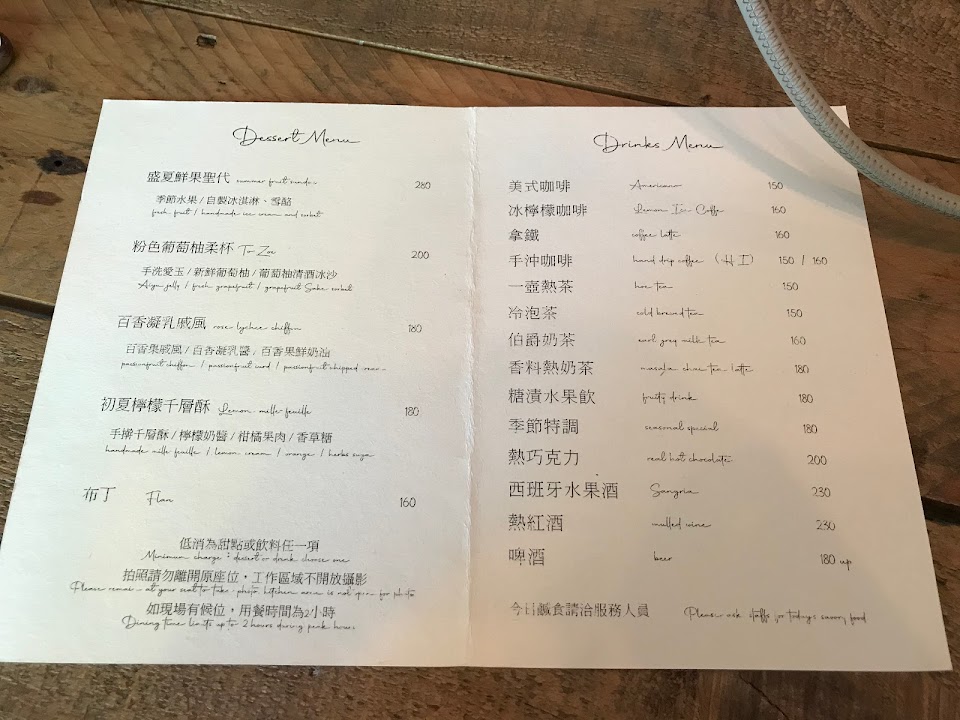 Dessert Menu
盛夏鮮果聖代 summer fruit sundae 280
季節水果 / 自製冰淇淋、雪酪
fresh fruit / handmade ice cream and sorbet
粉色葡萄柚柔杯 To Zoe 200
手洗愛玉 / 新鮮葡萄柚 / 葡萄柚清酒冰沙
Aiyu jelly / fresh grapefruit / grapefruit Sake sorbet
百香凝乳戚風 rose lychee chiffon 180
百香果戚風 / 百香凝乳醬 , 百香果鮮奶油
passionfruit chiffon / passionfruit curd / passionfruit whipped cream
初夏檸檬千層酥 Lemon mille-feuille 180
手擀千層酥 / 檸檬奶醬 / 柑橘果肉 / 香草糖
handmade mille feuille / lemon cream / orange / herbs suga
布丁 Flan 160
低消為甜點或飲料任一項
Minimum charge : dessert or drink choose one
拍照請勿離開原座位，工作區域不開放攝影
Please remain at your seat to take photo, kitchen area is not open for photo
如現場有候位，用餐時間為2小時
Dining time limits up to 2 hours during peak hours
Drinks Menu
美式咖啡 Americano 150
冰檸檬咖啡 Lemon Ice Coffe 160
拿鐵 coffee latte 160
手沖咖啡 hand drip coffee （H I） 150 / 160
一壺熱茶 hot tea 150
冷泡茶 cold brewed tea 150
伯爵奶茶 earl grey milk tea 160
香料熱奶茶 masala chai tea latte 180
糖漬水果飲 fruity drink 180
季節特調 seasonal special 180
熱巧克力 real hot chocolate 200
西班牙水果酒 Sangria 230
熱紅酒 mulled wine 230
啤酒 beer 180 up
今日鹹食請洽服務人員 Please ask staffs for todays savory food